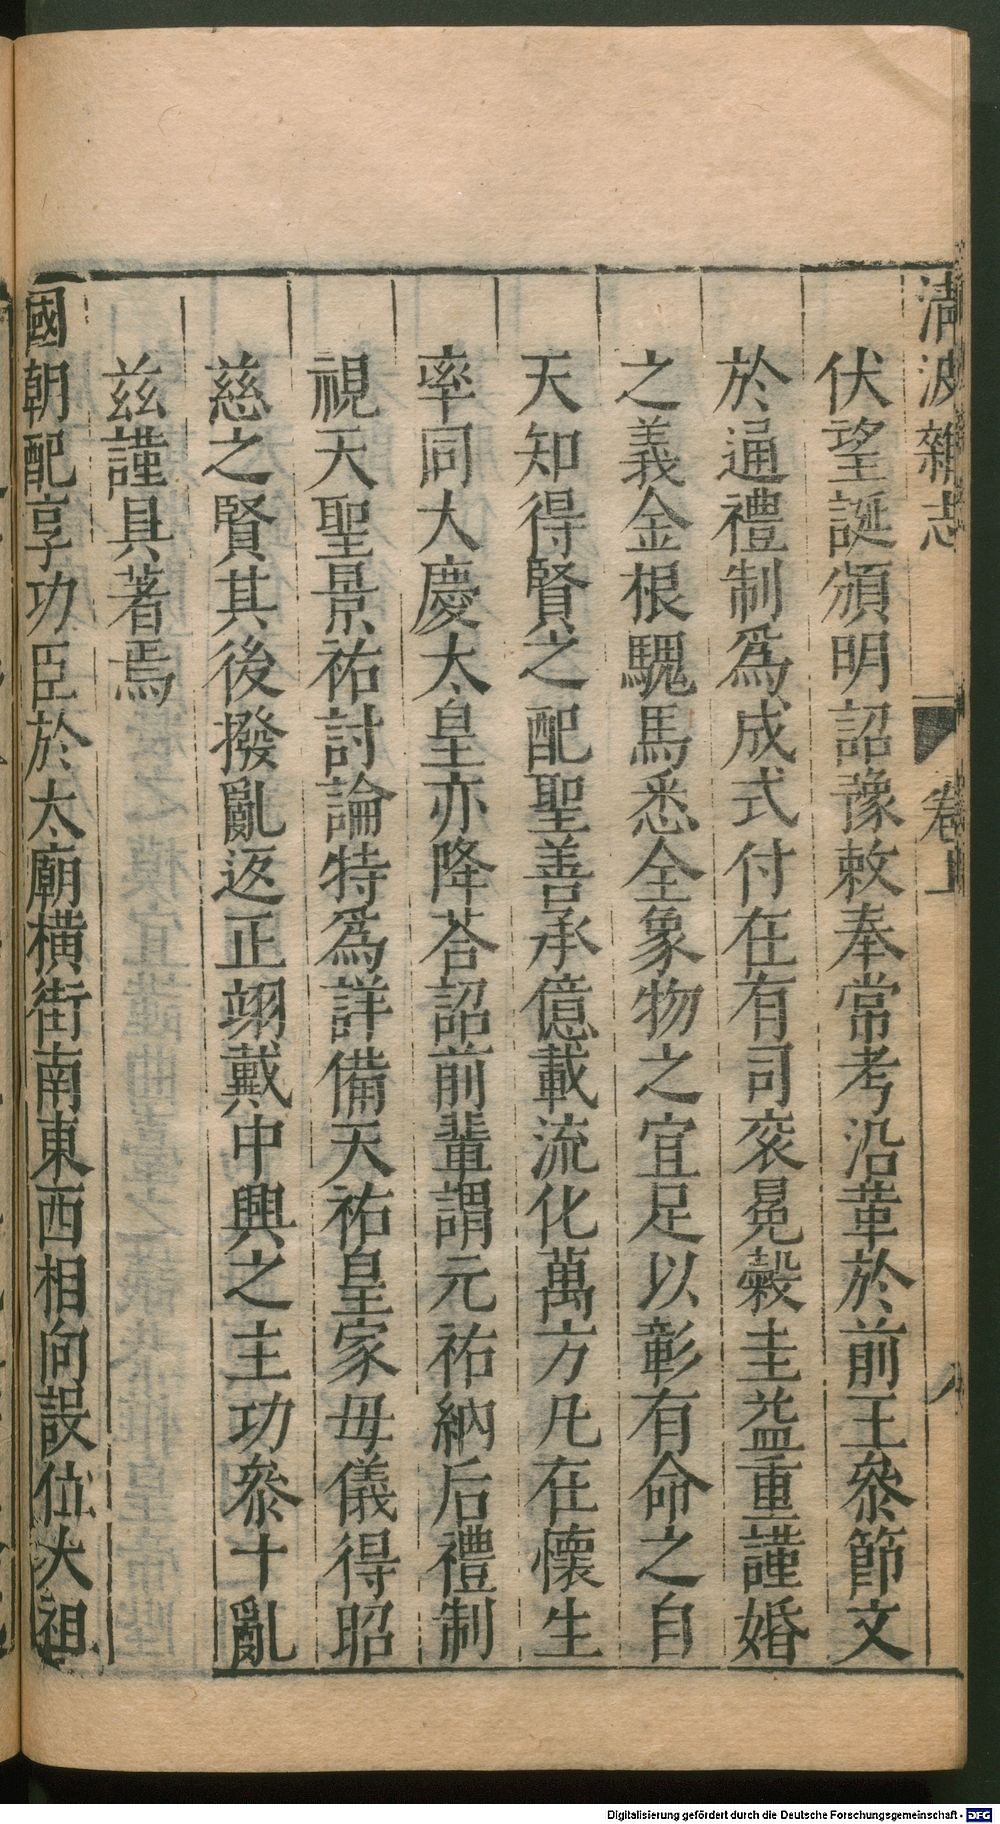 清波雜志 卷上 八
伏望誕頒明詔豫敕奉常考沿革於前王叅節文
於通禮制爲成式付在有司衮冕糓圭益重謹婚
之義金根騩馬悉全象物之宜足以彰有命之自
天知得賢之配聖善承億載流化萬方凡在懷生
率同大慶太皇亦降荅詔前輩謂元祐納后禮制
視天聖景祐討論特爲詳備天祐皇家母儀得昭
慈之賢其後撥亂返正翊戴中興之主功叅十亂
兹謹具著焉
國朝配享功臣於太廟橫街南東西相向設位大祖
Digitalisierung gefördert durch die Deutsche Forschungsgemeinschaft - DFG